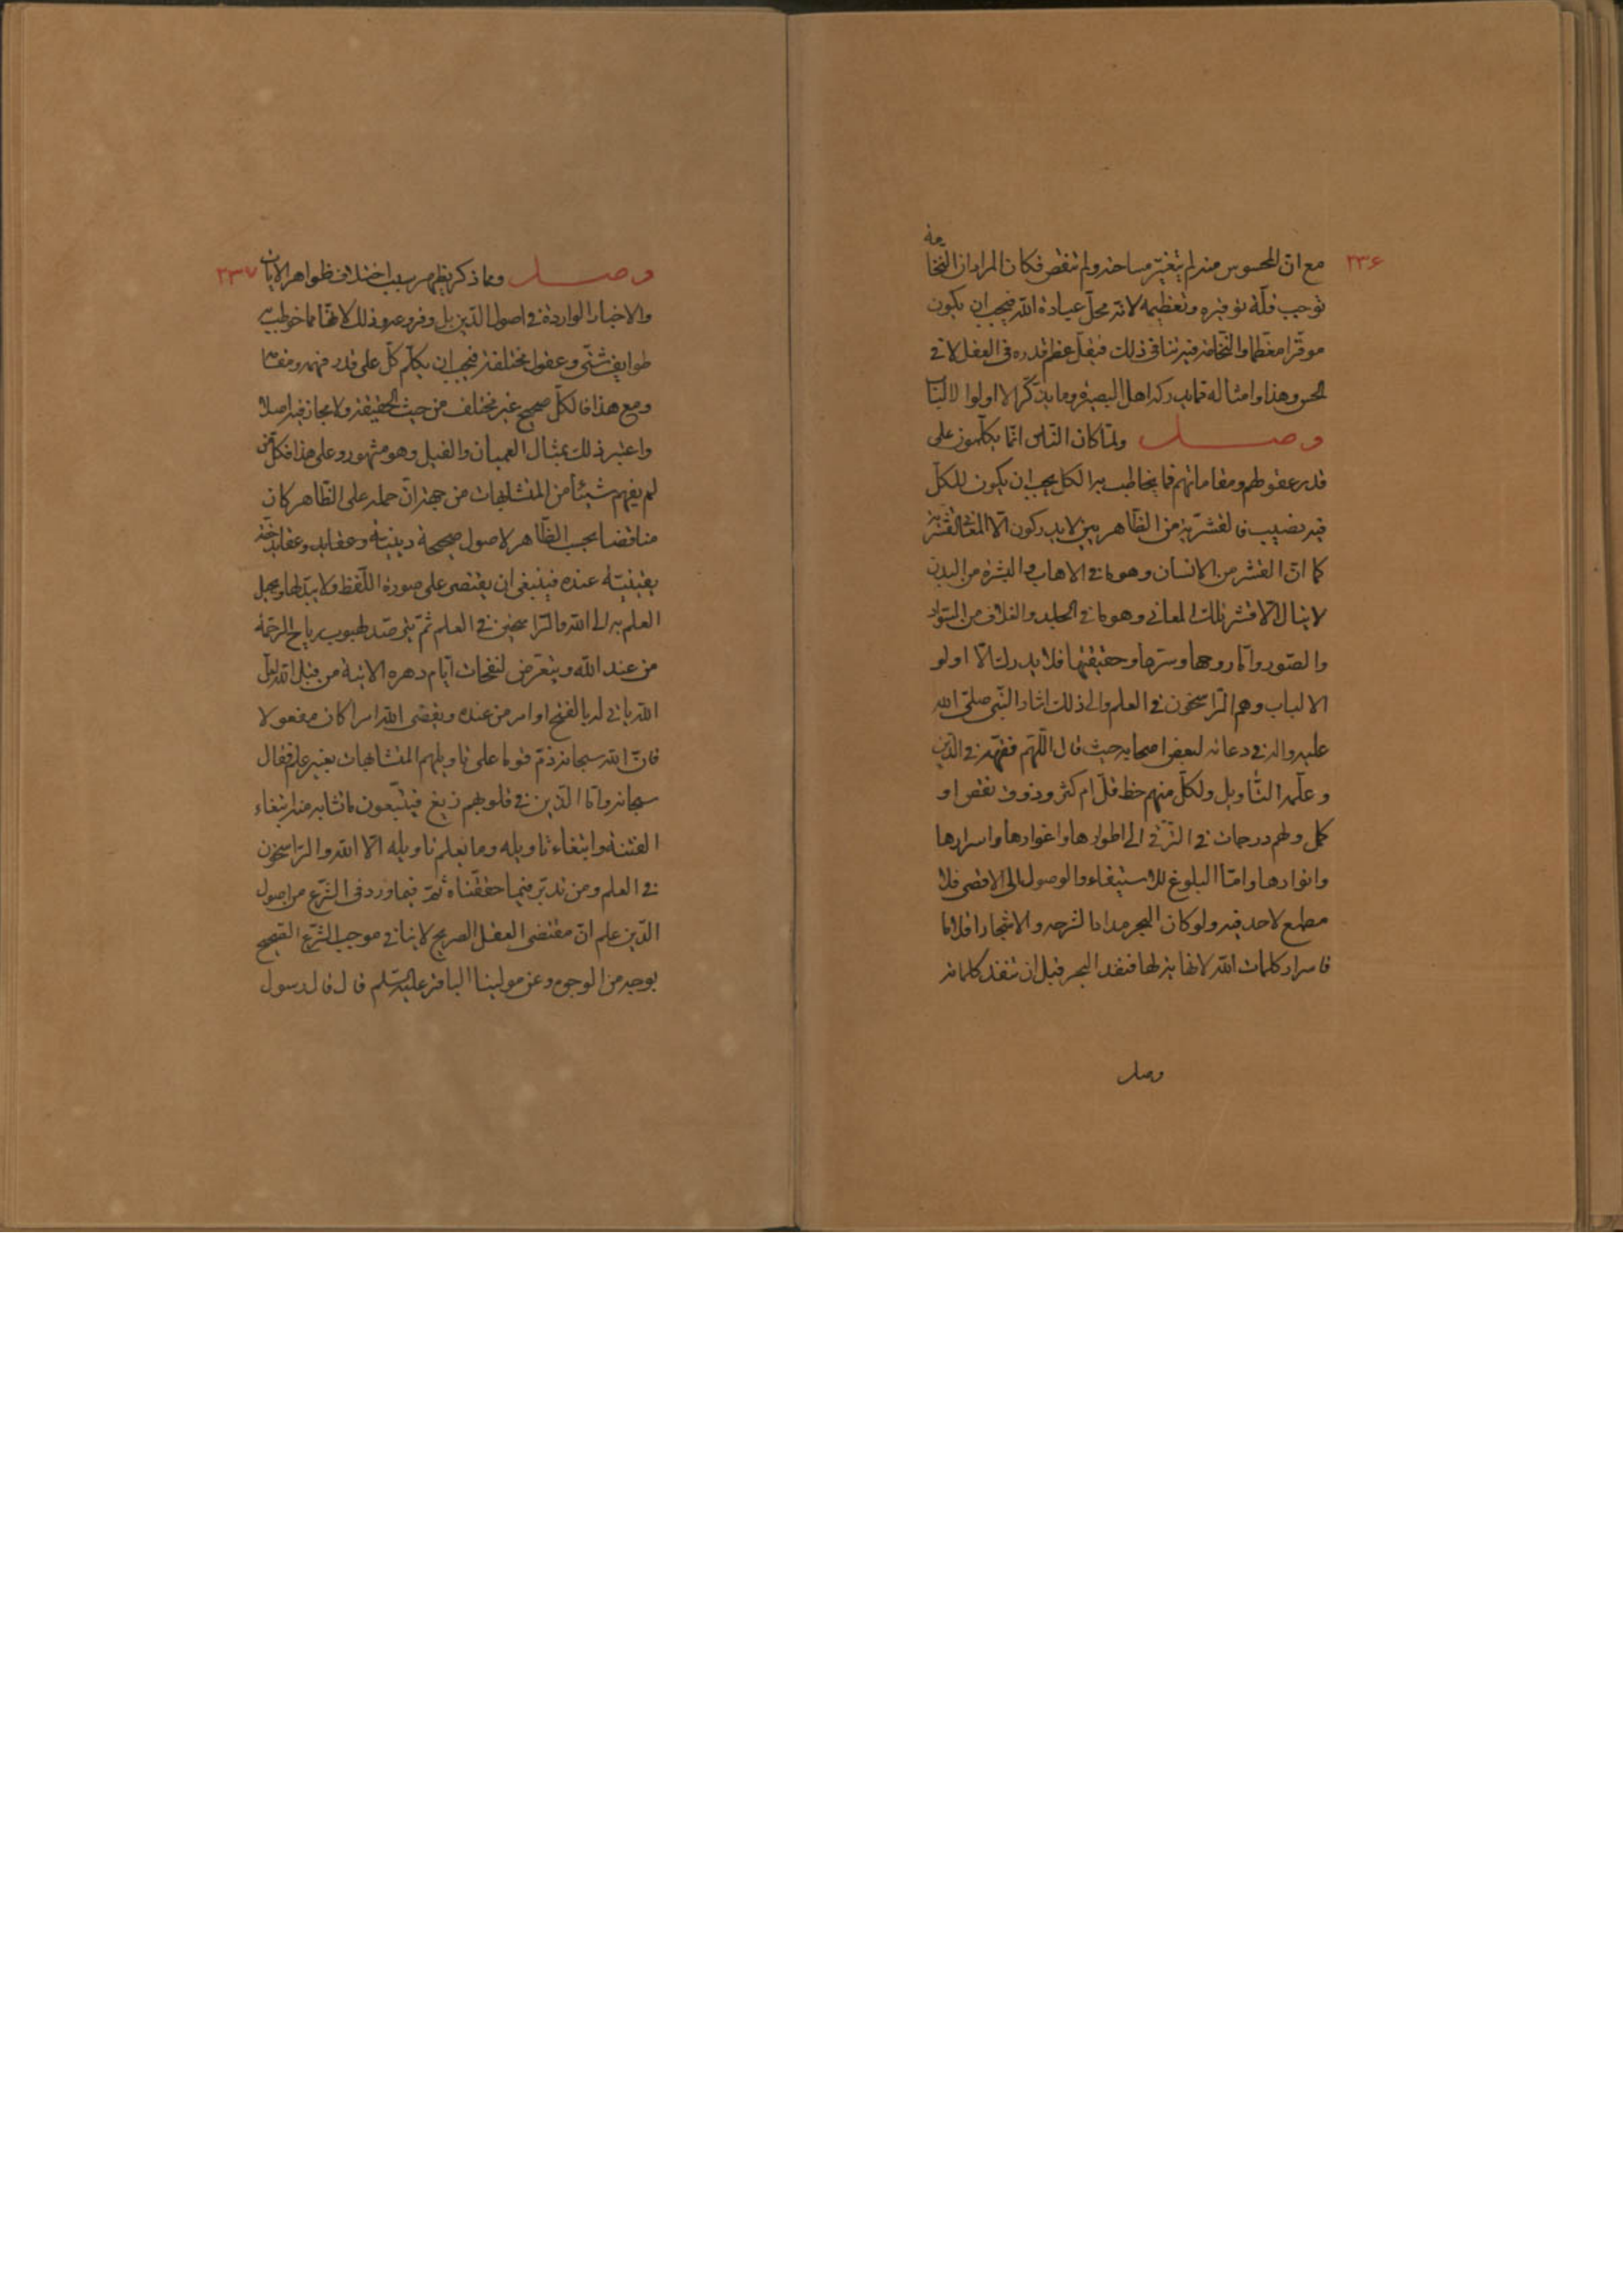 ٢٣۶
مع ان المحسوس منه لم يتغيّر مساحته ولم تنقص فكان المراد ان النّخامة
توجب قلّة توقيره وتعظيمه لانّه محلّ عبادة اللّه فيجب ان يكون
موقّرا معظّما والنّخامة فيه تنافى ذلك فيقلّ عظم قدره فى العقل لا فى
الحسّ وهذا وامثاله ممّا يدركه اهل البصيرة وما يتذكّر الّا اولوا الالباب
وصل ولمّا كان النّاس انّما يكلّمون على
قدر عقولهم ومقاماتهم فما يخاطب به الكل يجب ان يكون للكلّ
فيه نصيب فالقشريّة من الظّاهريين لا يدركون الّا المعانى القشريّة
كما انّ القشر من الانسان وهو ما فى الاهاب والبشرة من البدن
لا ينال الّا قشر تلك المعانى وهو ما فى الجلد والغلاف من السّواد
والصّور وامّا روحها وسرّها وحقيقتها فلا يدرك الّا اولو
الالباب وهم الرّاسخون فى العلم والى ذلك اشار النّبى صلّى اللّه
عليه واله فى دعائه لبعض اصحابه حيث قال اللّهم فقّهه فى الدّين
وعلّمه التّأويل ولكلّ منهم حظ قلّ ام كثر وذوق نقص او
كمل ولهم درجات فى التّرقّى الى اطوارها واغوارها واسرارها
وانوارها وامّا البلوغ للاستيفاء والوصول الى الاقصى فلا
مطمع لاحد فيه ولو كان البحر مدادا لشرحه والاشجار اقلاما
فاسرار كلمات اللّه لا نهاية لها فنفد البحر قبل ان تنفد كلماته
وصل
٢٣٧
وصل وممّا ذكر يظهر سبب اختلاف ظواهر الايات
والاخبار الواردة فى اصول الدّين بل وفروعه وذلك لانّها مما خوطب به
طوايف شتّى وعقول مختلفة فيجب ان يكلّم كلّ على قدر فهمه ومقامه
ومع هذا فالكلّ صحيح غير مختلف من حيث الحقيقة ولا مجاز فيه اصلا
واعتبر ذلك بمثال العميان والفيل وهو مشهور وعلى هذا فكلّ من
لم يفهم شيئا من المتشابهات من جهة انّ حمله على الظّاهر كان
مناقضا بحسب الظّاهر لاصول صحيحة دينيّة وعقايد حقّة
يقينيّة عنده فينبغى ان يقتصر على صورة اللّفظ ولا يبدّلها ويحيل
العلم به الى اللّه والرّاسخين فى العلم ثمّ يترصّد لهبوب رياح الرّحمة
من عند اللّه ويتعرّض لنفحات ايّام دهره الاتية من قبل اللّه لعلّ
اللّه يأتى له بالفتح او امر من عنده ويقضى اللّه امرا كان مفعولا
فانّ اللّه سبحانه ذمّ قوما على تأويلهم المتشابهات بغير علم فقال
سبحانه وامّا الّذين فى قلوبهم زيغ فيتّبعون ما تشابه منه ابتغاء
الفتنة وابتغاء تأويله وما يعلم تأويله الّا اللّه والرّاسخون
فى العلم ومن تدبّر فيما حقّقناه ثمّ فيما ورد فى الشّرع من اصول
الدّين علم انّ مقتضى العقل الصريح لا ينافى موجب الشّرع الصّحيح
بوجه من الوجوه وعن مولينا الباقر عليه السّلم قال قال رسول